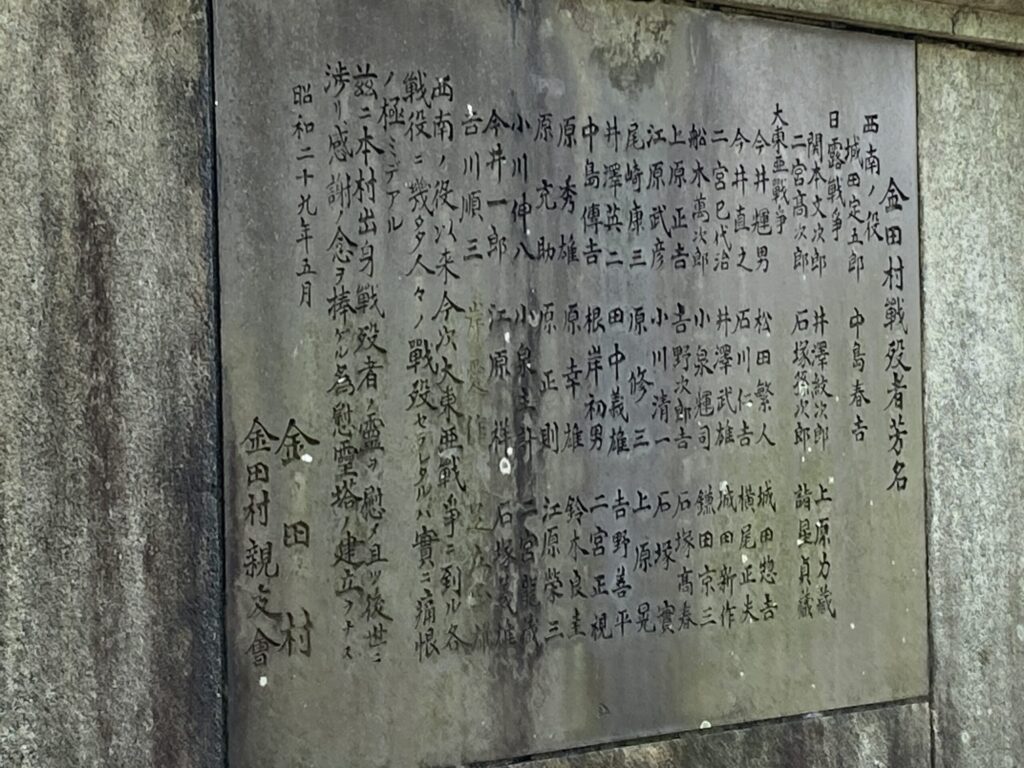 金田村戰歿者芳名
西南ノ役
城田定五郎 中島春吉
日露戦争
関本文次郎 井澤紋次郎 上原力藏
二宮高次郎 石塚孫次郎 諸星貞藏
大東亜戦争
今井輝男 松田繁人 城田惣吉
今井直之 石川仁吉 横尾正夫
二宮巳代治 井澤武雄 城田新作
船木萬次郎 小泉輝司 鎌田京三
上原正吉 吉野次郎吉 石塚高春
江原武彦 小川清一 石塚實
尾崎康三 原修三 上原晃
井澤英二 田中義雄 吉野善平
中島傳吉 根岸初男 二宮正視
原秀雄 原幸雄 鈴木良圭
原充助 原正則 江原榮三
小川伸八 小泉 二宮龍藏
今井一郎 江原祥 石塚義雄
吉川順三
西南ノ役以来今次大東亜戦争ニ到ル各
戦役ニ幾多ノ人々ノ戰歿セラレタルハ實ニ痛恨
ノ極ミデアル
茲ニ本村出身戦歿者ノ靈ヲ慰メ且ツ後世ニ
渉リ感謝ノ念ヲ捧ゲル為慰霊塔ノ建立ヲナス
昭和二十九年五月
金田村
金田村親交會